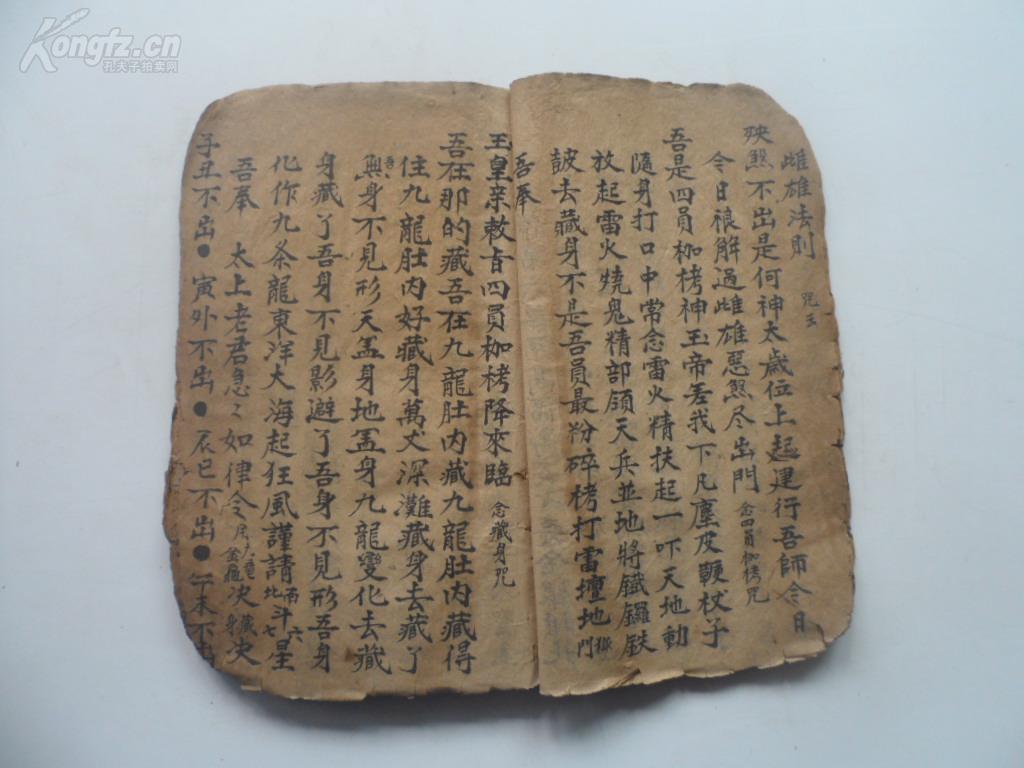 Kongfz.cn
孔夫子拍卖网
雌雄法則 咒云
殃煞不出是何神太歲位上起建行吾師令日
今日禳解過雌雄惡煞尽出門 念四員枷栲咒
吾是四員枷栲神玉帝差我下凡塵及鞭杖子
隨身打口中常念雷火精扶起一吓天地動
放起雷火燒鬼精部領天兵並地將鐵鑼鉄
皷去藏身不是吾員最粉碎栲打雷壇地門
吾奉
王皇亲敕旨四員枷栲降來臨 念藏身咒
吾在那的藏吾在九龍肚内藏九龍肚内藏得
住九龍肚内好藏身萬丈深灘藏身去藏了
身不見形天盖身地盖身九龍變化去藏
身藏了吾身不見影避了吾身不見形吾身
化作九条龍東洋大海起狂風謹請南斗六北七星
吾奉 太上老君急々如律令 決藏身決
子丑不出●寅外不出●辰巳不出●午未不出